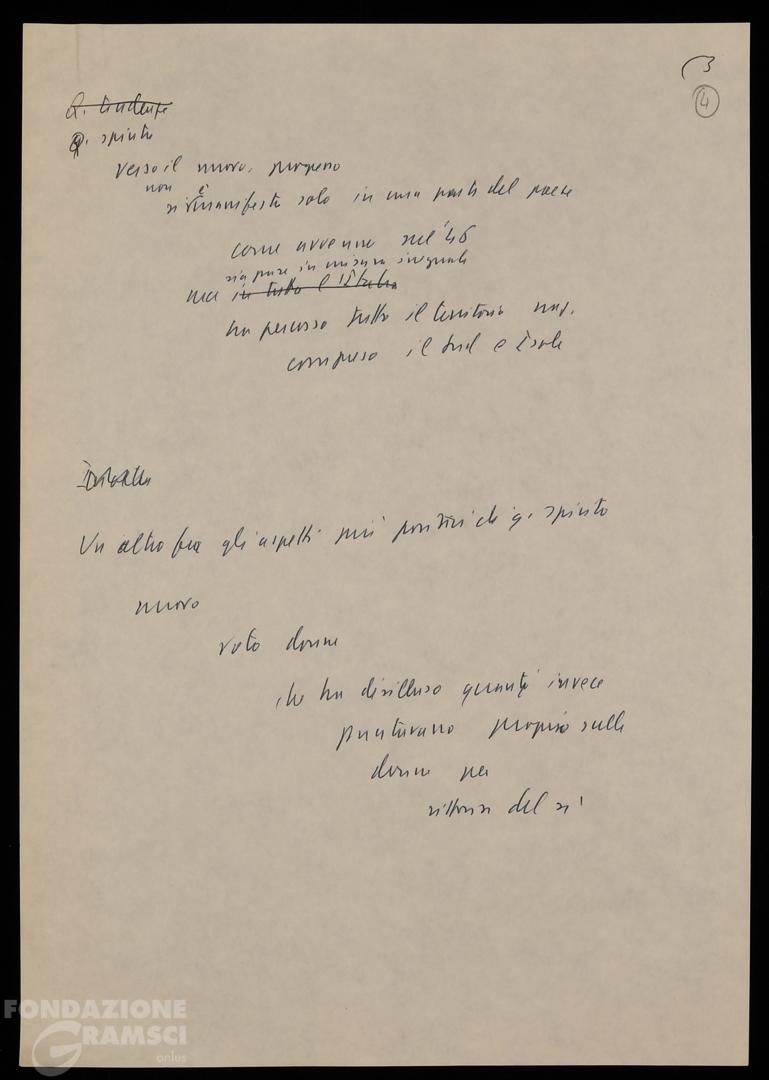 3
4
Q. tendenza
Q. spinta
verso il nuovo, progresso
non è
si manifesta solo in una parte del paese
come avvenne nel '46
sia pure in misura ineguale
ma in tutta l'Italia
ha percorso tutto il territorio naz.
compreso il Sud e Isole
Un altro fra gli aspetti più positivi di q. spirito
nuovo
voto donne
che ha disilluso quanti invece
puntavano proprio sulle
donne per
vittoria del sì
FONDAZIONE
GRAMSCI
onlus